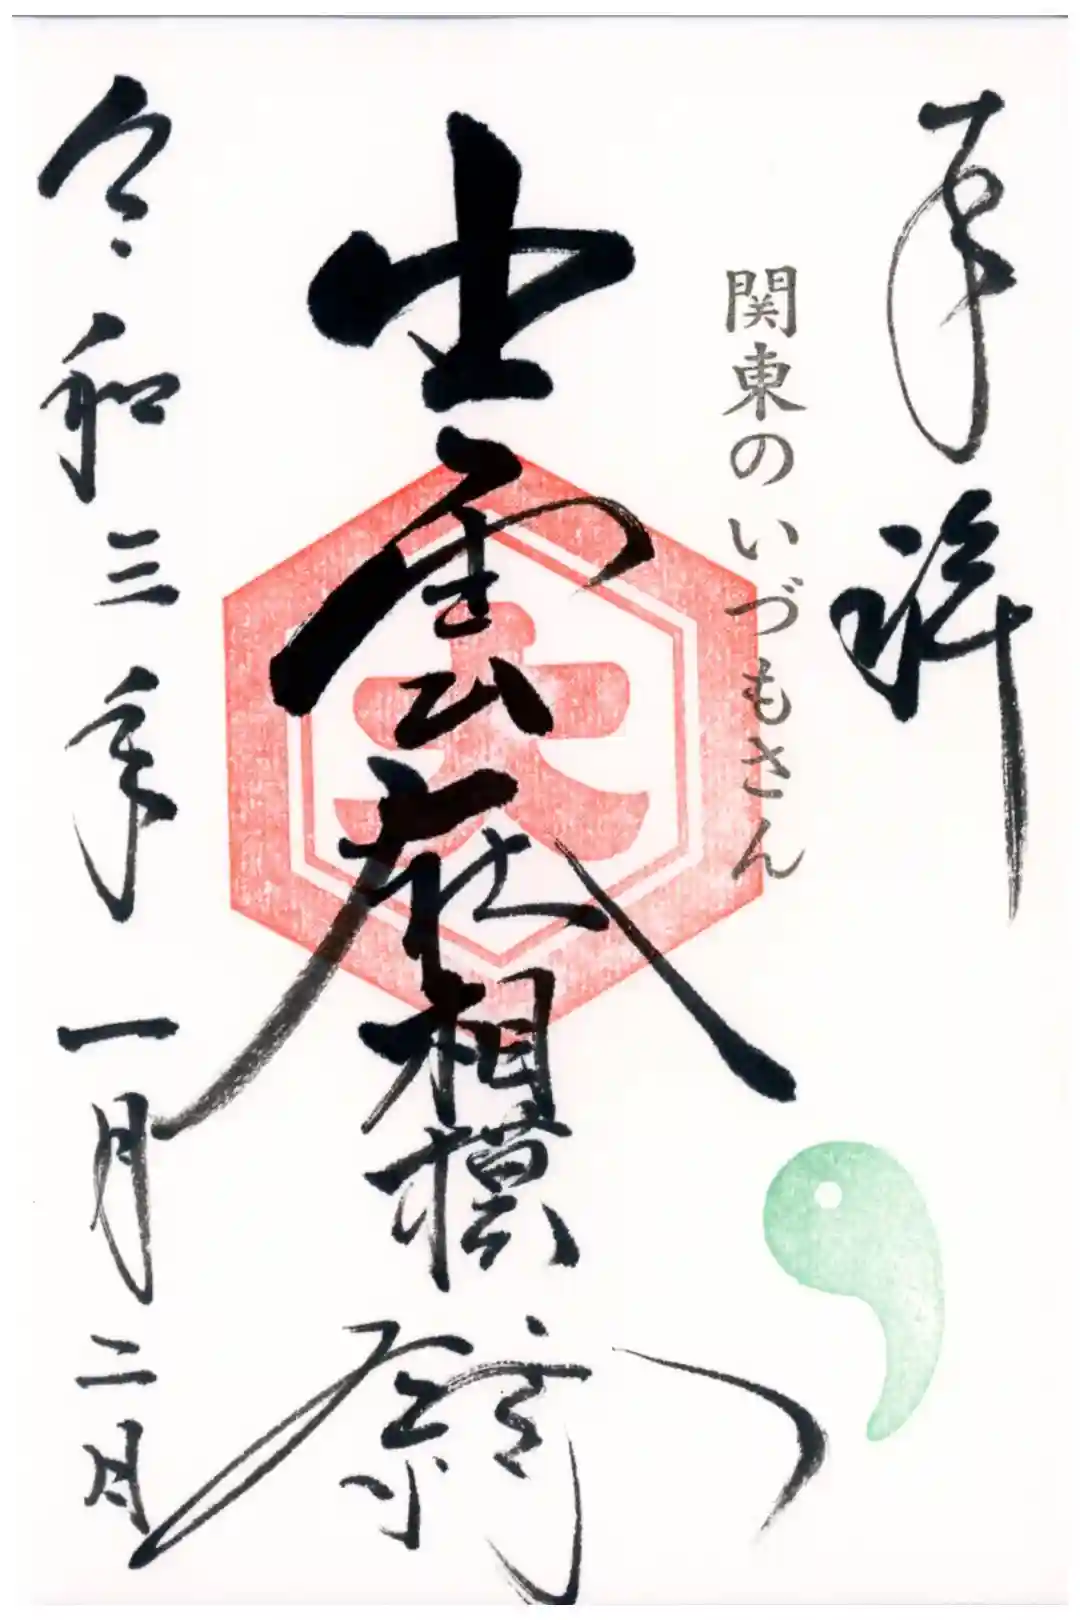 奉拝
関東のいづもさん
出雲大社相模分祠
大
令和三年一月二日